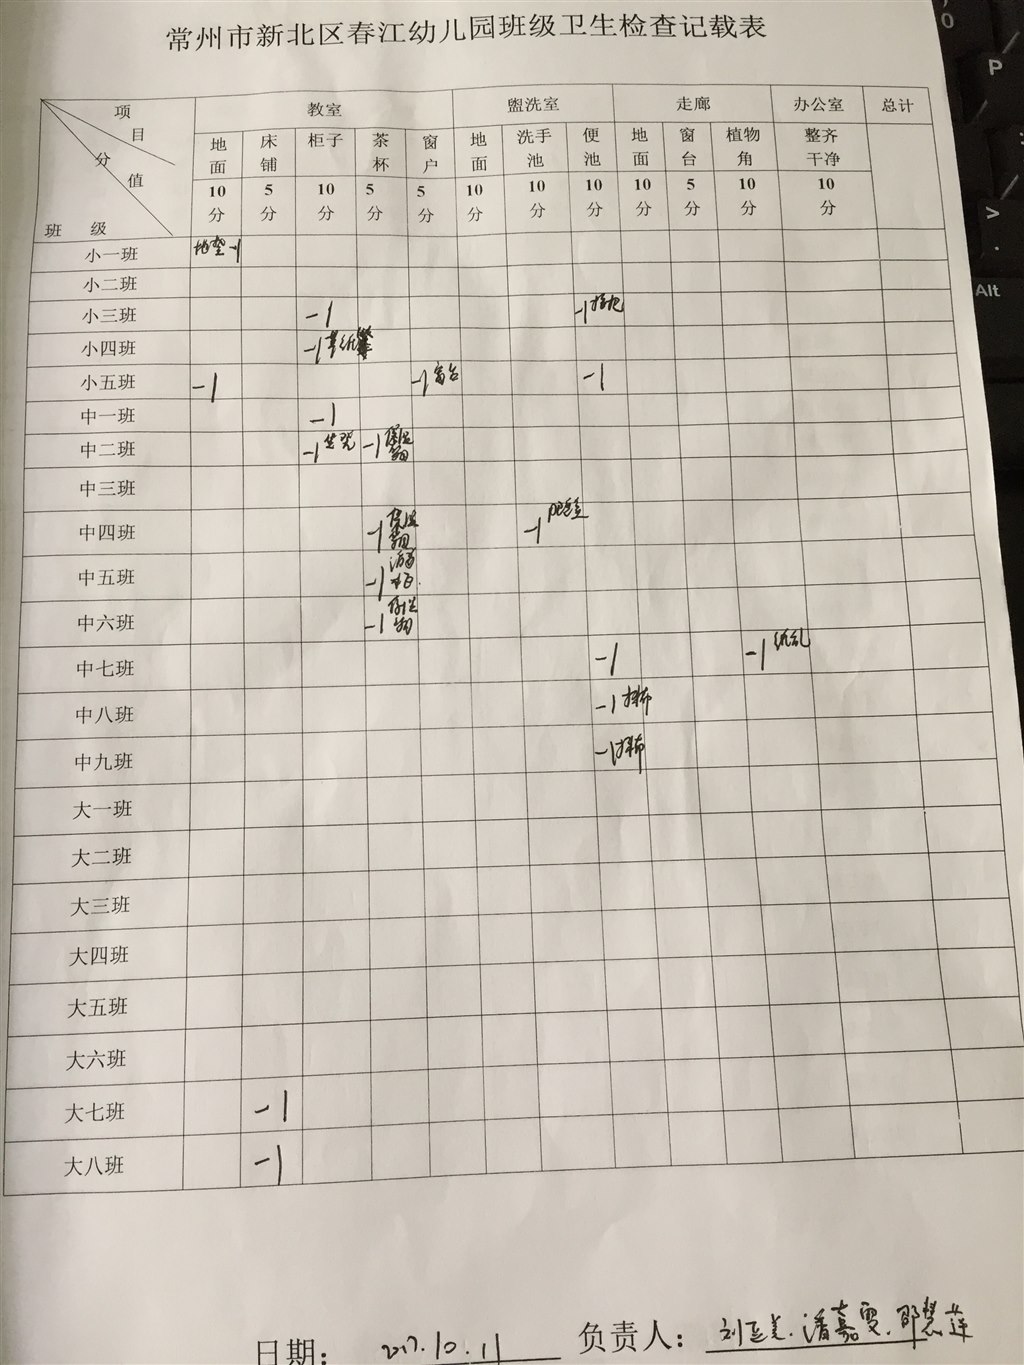 常州市新北区春江幼儿园班级卫生检查记载表
项目 分值 班级 教室 盥洗室 走廊 办公室 总计
地面 床铺 柜子 茶杯 窗户 地面 洗手池 便池 地面 窗台 植物角 整齐干净
10分 5分 10分 5分 5分 10分 10分 10分 10分 5分 10分 10分
小一班 -1
小二班
小三班 -1 -1
小四班 -1
小五班 -1 -1 窗台 -1
中一班 -1
中二班 -1 -1
中三班
中四班 -1 -1
中五班 -1
中六班 -1
中七班 -1 -1
中八班 -1
中九班 -1
大一班
大二班
大三班
大四班
大五班
大六班
大七班 -1
大八班 -1
日期: 2017.10.11 负责人: 潘嘉雯.邵慧莲